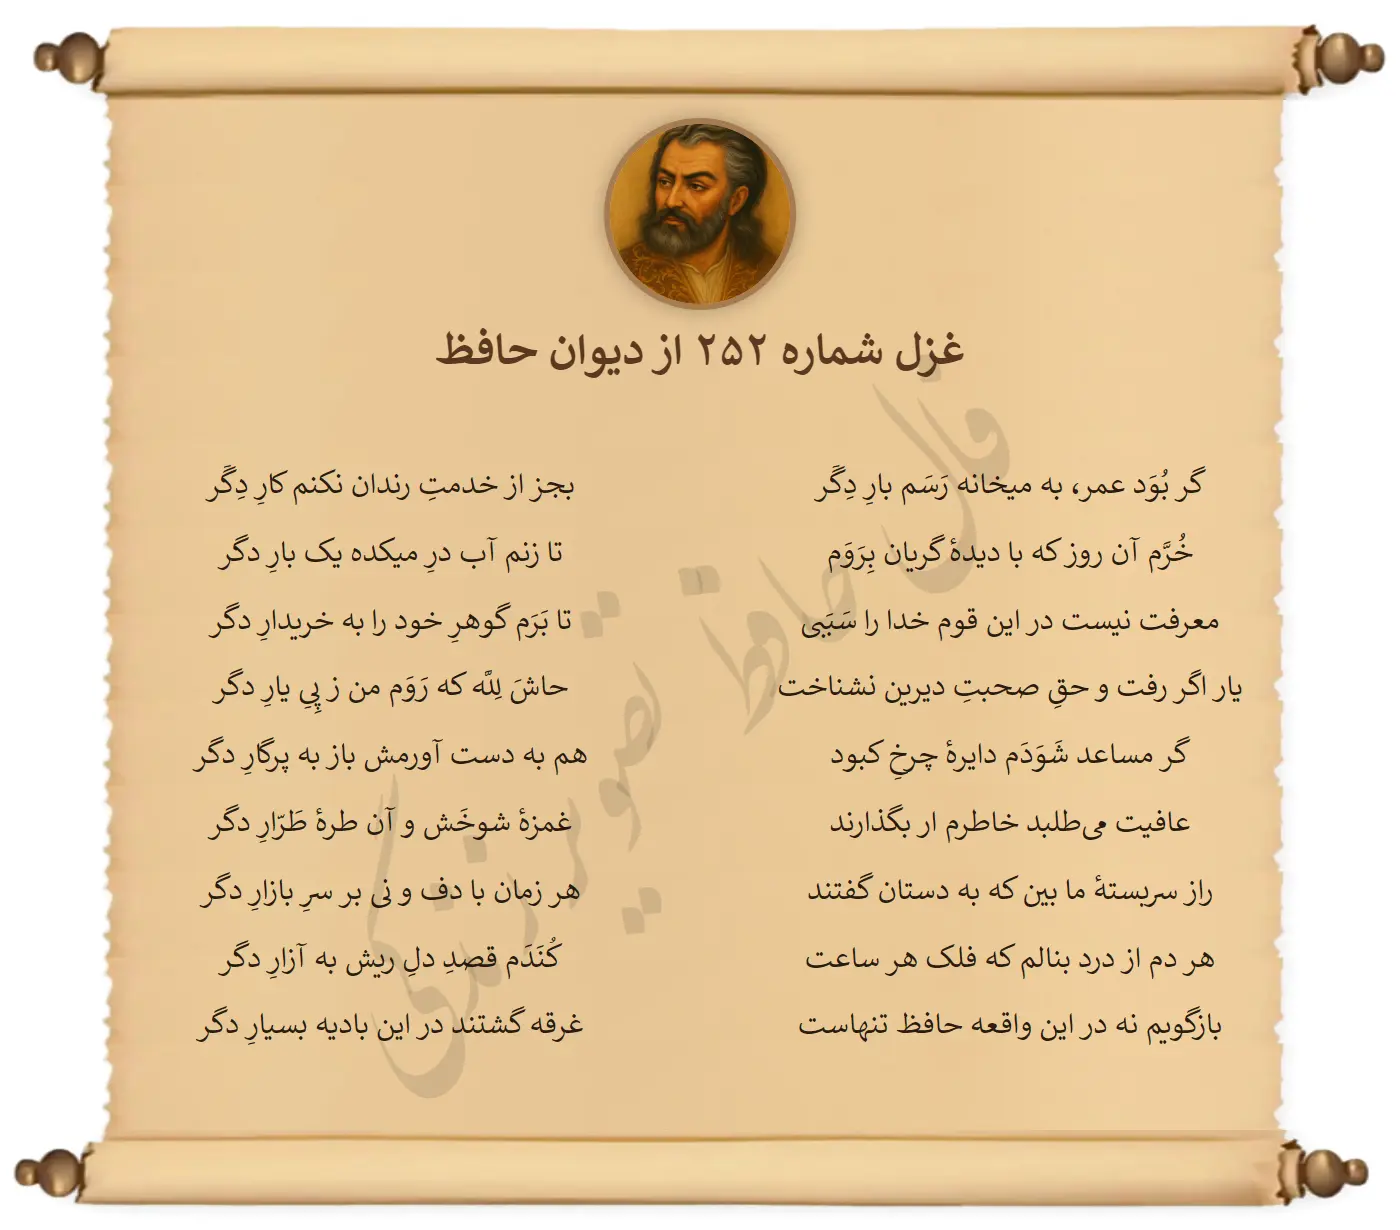 غزل شماره ۲۵۲ از دیوان حافظ
گر بُوَد عمر، به میخانه رَسَم بارِ دِگَر بجز از خدمتِ رندان نکنم کارِ دِگَر
خُرَّم آن روز که با دیدهٔ گریان بِرَوَم تا زنم آب درِ میکده یک بارِ دگر
معرفت نیست در این قوم خدا را سَبَبی تا بَرَم گوهرِ خود را به خریدارِ دگر
یار اگر رفت و حقِ صحبتِ دیرین نشناخت حاشَ لِلَّه که رَوَم من ز پِیِ یارِ دگر
گر مساعد شَوَدَم دایرهٔ چرخِ کبود هم به دست آورمش باز به پرگارِ دگر
عافیت می‌طلبد خاطرم ار بگذارند غمزهٔ شوخَش و آن طرهٔ طَرّارِ دگر
راز سربستهٔ ما بین که به دستان گفتند هر زمان با دف و نی بر سرِ بازارِ دگر
هر دم از درد بنالم که فلک هر ساعت کُنَدَم قصدِ دلِ ریش به آزارِ دگر
بازگویم نه در این واقعه حافظ تنهاست غرقه گشتند در این بادیه بسیارِ دگر
فال حافظ تصویر زندگی